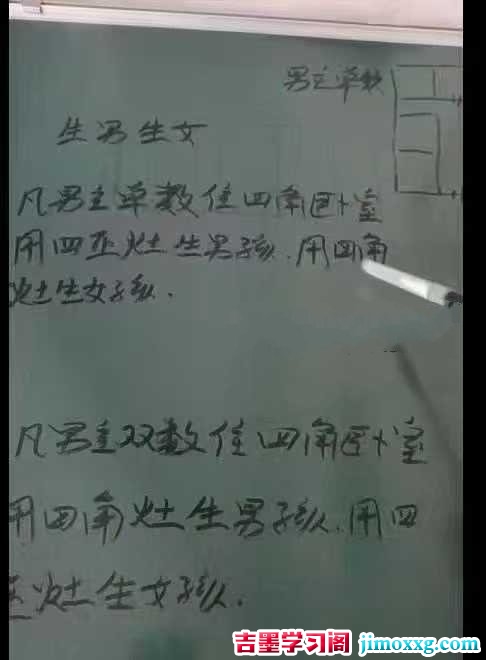 男主单数
生男生女
凡男主单数住四角卧室
用四正灶生男孩.用四角
灶生女孩.
凡男主双数住四角卧室
用四角灶生男孩.用四
正灶生女孩.
吉墨学习阁 jimoxxg.com